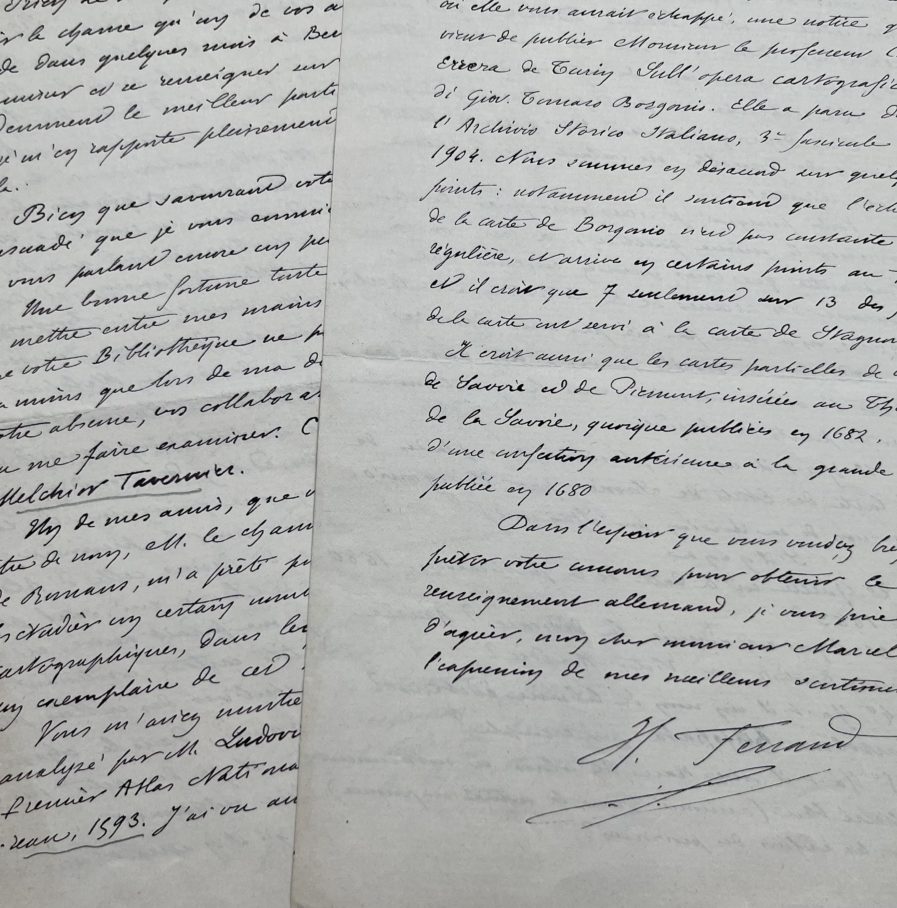 le charme qu'un de vos
de dans quelques mois à
et se renseigner sur
le meilleur parti
m'en rapporte pleinement
Bien que savourant
suadé que je vous
vous parlant encore un
Une bonne fortune
mettre entre mes mains
votre Bibliothèque ne
moins que lors de ma
absence, vos
me faire examiner.
Melchior Tavernier.
Un de mes amis, que
de nom, M. le
de Romans, m'a prêté
un certain
cartographiques, dans
un exemplaire de cet
Vous m'aviez montré
analysé par M. Ludovic
Premier Atlas National
reau, 1593. J'ai vu au
où elle vous aurait échappé, une notice
vient de publier Monsieur le professeur
Errera de Turin Sull'opera cartografica
di Giov. Tomaso Borgonio. Elle a paru
l'Archivio Storico Italiano, 3e fascicule
1904. Nous sommes en désaccord sur
points : notamment il soutient que
de la carte de Borgonio n'est pas constante
régulière, et arrive en certains points au
et il croit que 7 seulement sur 13 des
de la carte ont servi à la carte de
Il croit aussi que les cartes partielles de
de Savoie et de Piémont, insérées au
de la Savoie, quoique publiées en 1682,
d'une confection antérieure à la grande
publiée en 1680
Dans l'espoir que vous voudrez
prêter votre concours pour obtenir le
renseignement allemand, je vous prie
d'agréer, mon cher monsieur Marcel
l'expression de mes meilleurs
H. Ferrand